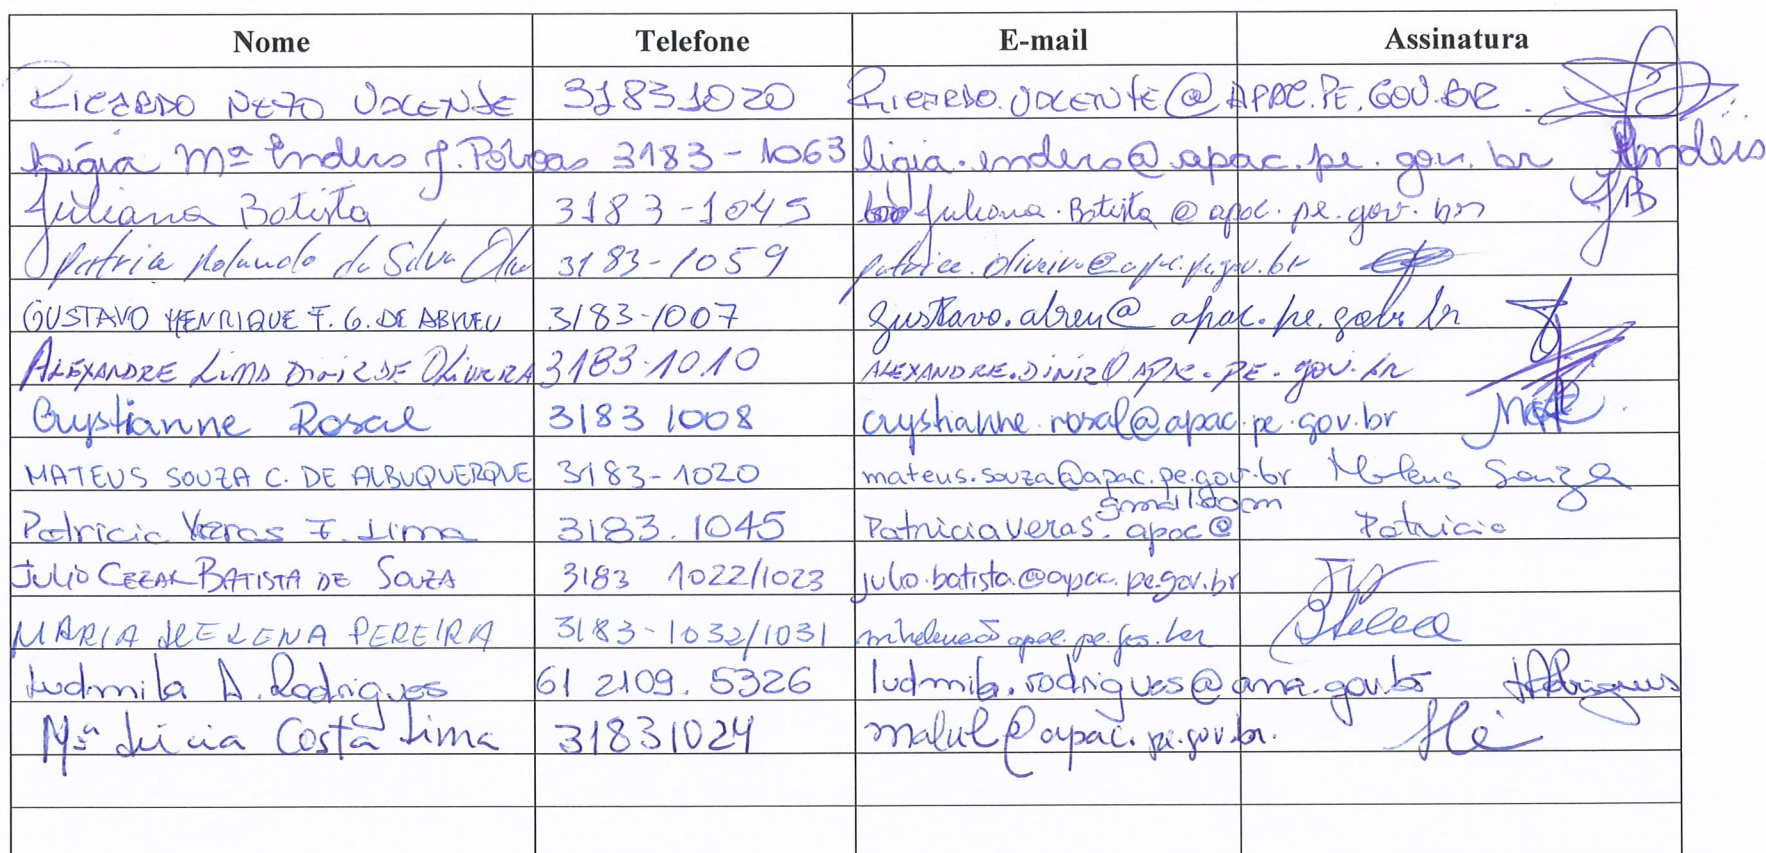 Nome Telefone E-mail Assinatura
RICARDO NETO VALENTE 3183 1020 RICARDO.VALENTE@APAC.PE.GOV.BR
Lígia Mª Enders J. 3183-1063 ligia.enders@apac.pe.gov.br Enders
Juliana Batista 3183-1045 Juliana.Batista@apac.pe.gov.br JB
da Silva 3183-1059
GUSTAVO HENRIQUE F. G. DE ABREU 3183-1007 gustavo.abreu@apac.pe.gov.br
ALEXANDRE LIMA DINIZ DE OLIVEIRA 3183.10.10 ALEXANDRE.DINIZ@APAC.PE.gov.br
Crystianne Rosal 3183 1008 crystianne.rosal@apac.pe.gov.br
MATEUS SOUZA C. DE ALBUQUERQUE 3183-1020 mateus.souza@apac.pe.gov.br Mateus Souza
Patricia Veras F. Lima 3183.1045 Patriciaveras.apac@gmail.com Patricia
JULIO CEZAR BATISTA DE SOUZA 3183 1022/1023 julio.batista@apac.pe.gov.br
MARIA HELENA PEREIRA 3183-1032/1031
Ludmila A. Rodrigues 61 2109.5326 ludmila.rodrigues@ana.gov.br
Mª Lúcia Costa Lima 31831024 malul@apac.pe.gov.br.